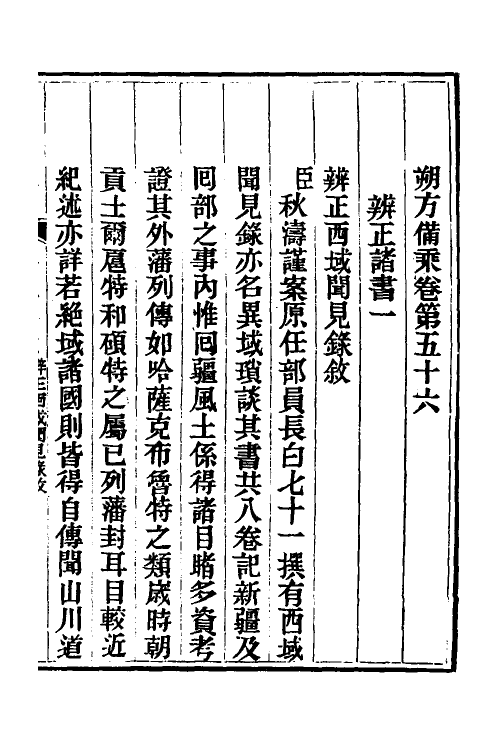 朔方備乘卷第五十六
辨正諸書一
辨正西域聞見錄敘
臣秋濤謹案原任部員長白七十一撰有西域
聞見錄亦名異域瑣談其書共八卷記新疆及
回部之事內惟回疆風土係得諸目睹多資考
證其外藩列傳如哈薩克布魯特之類歲時朝
貢土爾扈特和碩特之屬已列藩封耳目較近
紀述亦詳若絕域諸國則皆得自傳聞山川道
辨正西域聞見錄敘